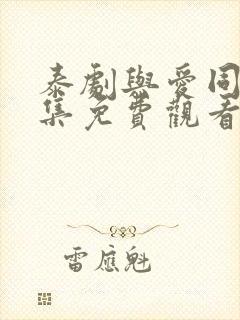 泰劇與愛同
集免費觀看
雷應魁